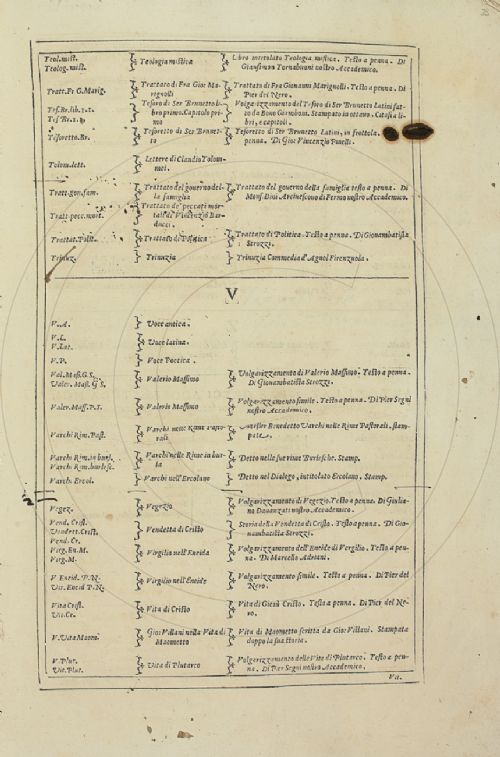 Teol. mist. Teologia mistica Libro intitolato Teologia mistica. Testo a penna. Di
Teolog. mist. Giansimon Tornabuoni nostro Accademico.
Tratt. Fr. G. Marig. Trattato di Fra Gio: Ma- Trattato di Fra Giovanni Marignolli. Testo a penna. Di
rignolli Pier del Nero.
Tes. Br. lib. 1. 1. Tesoro di Ser Brunetto li- Volgarizzamento del Tesoro di Ser Brunetto Latini fat-
Tes. Br. 1. 1. bro primo. Capitolo pri- to da Bono Giamboni. Stampato in ottavo. Citasi a li-
mo bri, e capitoli.
Tesoretto. Br. Tesoretto di Ser Brunet- Tesoretto di Ser Brunetto Latini, in frottola.
to penna. Di Gio: Vincenzio Pinelli.
Tolom. lett. Lettere di Claudio Tolom-
mei.
Tratt. gov. fam. Trattato del governo del- Trattato del governo della famiglia testo a penna. Di
la famiglia Mons. Dini Arcivescovo di Fermo nostro Accademico.
Tratt. pecc. mort. Trattato de' peccati mor-
tali di Vincenzio Bor-
ducci.
Trattat. Polit. Trattato di Politica Trattato di Politica. Testo a penna. Di Giovambatista
Strozzi.
Trinuz. Trinuzia Trinuzia Commedia d'Agnol Firenzuola.
V
V. A. Voce antica.
V. L. Voce latina.
V. Lat.
V. P. Voce Poetica.
Val. Mass. G. S. Valerio Massimo Volgarizzamento di Valerio Massimo. Testo a penna.
Valer. Mass. G S. Di Giovambatista Strozzi.
Valer. Mass. P. S. Valerio Massimo Volgarizzamento simile. Testo a penna. Di Pier Segni
nostro Accademico.
Varchi Rim. Past. Varchi nelle Rime Pasto- Messer Benedetto Varchi nelle Rime Pastorali, stam-
rali pate.
Varchi Rim. in burl. Varchi nelle Rime in bur- Detto nelle sue rime Burlesche. Stamp.
Varchi Rim. burlesc. la
Varch. Ercol. Varchi nell'Ercolano Detto nel Dialogo, intitolato Ercolano. Stamp.
Vegez. Vegezio Volgarizzamento di Vegezio. Testo a penna. Di Giulia-
no Davanzati nostro Accademico.
Vend. Crist. Vendetta di Cristo Storia della Vendetta di Cristo. Testo a penna. Di Gio-
Vendett. Crist. vambatista Strozzi.
Vend. Cr.
Virg. En. M. Virgilio nell'Eneida Volgarizzamento dell'Eneide di Vergilio. Testo a pen-
Virg. M. na. Di Marcello Adriani.
V Eneid. P. N. Virgilio nell'Eneide Volgarizzamento simile. Testo a penna. Di Pier del
Vir. Eneid P. N. Nero.
Vita Crist. Vita di Cristo Vita di Giesù Cristo. Testo a penna. Di Pier del Ne-
Vit. Cr. ro.
V. Vita Maom. Gio: Villani nella Vita di Vita di Maometto scritta da Gio: Villani. Stampata
Maometto doppo la sua storia.
V. Plut. Vita di Plutarco Volgarizzamento delle Vite di Plutarco. Testo a pen-
Vit. Plut. na. Di Pier Segni nostro Accademico.
Vit.